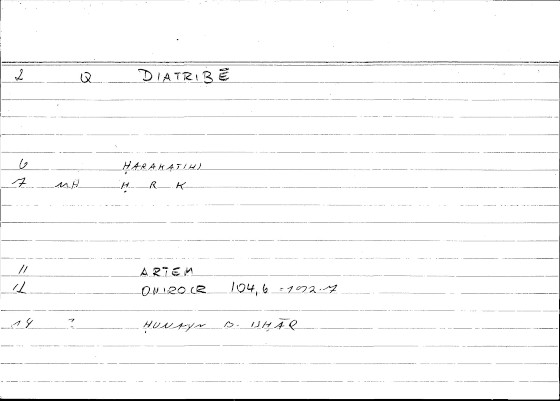 2 Q DIATRIBĒ
6 ḤARAKATIHI
7 MH Ḥ R K
11 ARTEM
12 ONIROCR 104,6 = 192.7
14 ? ḤUNAYN B. ISḤĀQ